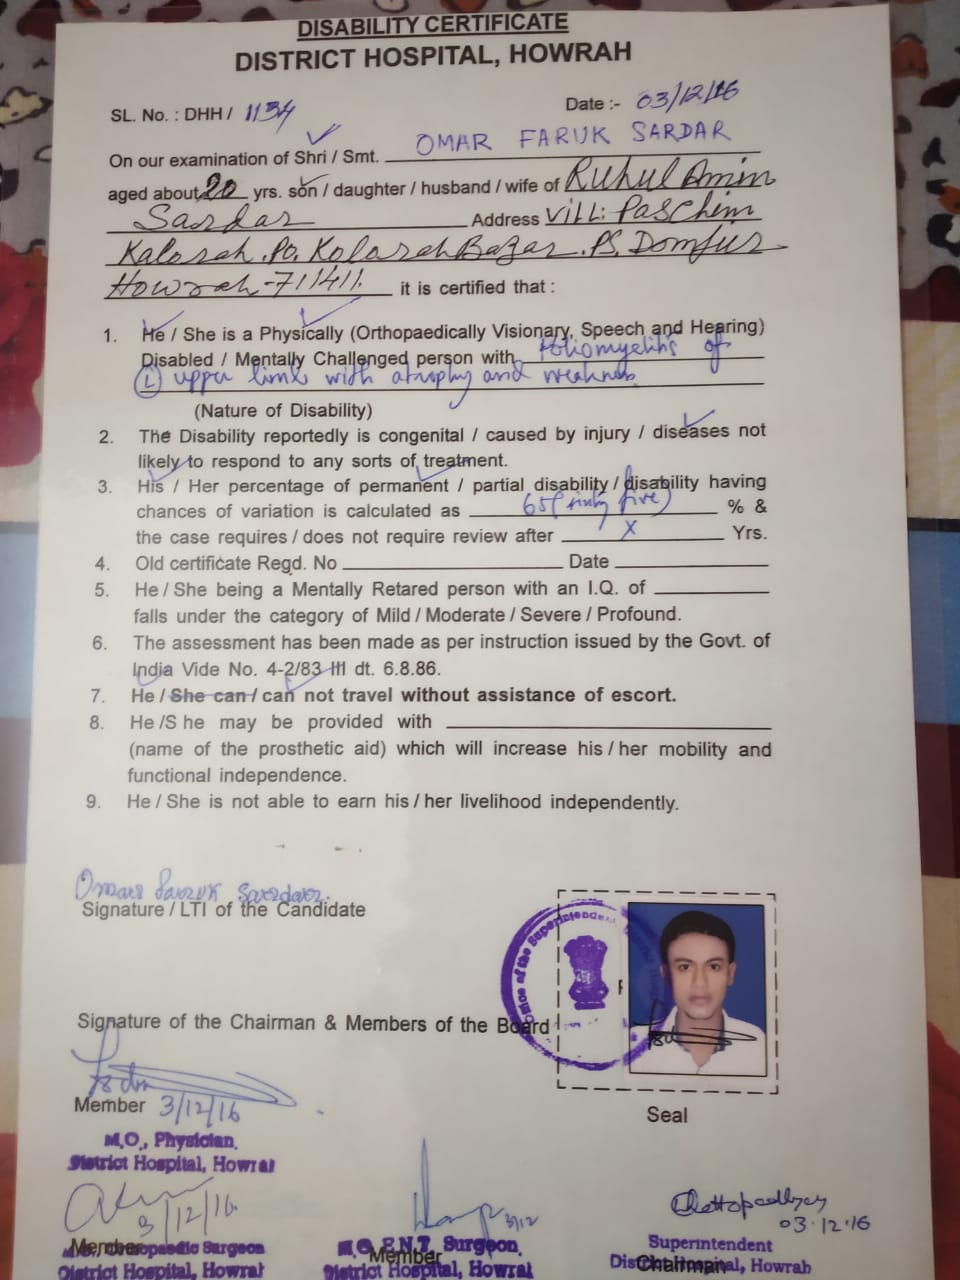 DISABILITY CERTIFICATE
DISTRICT HOSPITAL, HOWRAH
SL. No. : DHH / 1134 Date :- 03/12/16
On our examination of Shri / Smt. OMAR FARUK SARDAR
aged about 20 yrs. son / daughter / husband / wife of Ruhul Amin
Sardar Address Vill: Paschim
Kalorah .PO. Kolorah Bazar .PS. Domjur
Howrah-711411. it is certified that :
1. He / She is a Physically (Orthopaedically Visionary, Speech and Hearing)
Disabled / Mentally Challenged person with Poliomyelitis of
(L) upper limb with atrophy and weakness
(Nature of Disability)
2. The Disability reportedly is congenital / caused by injury / diseases not
likely to respond to any sorts of treatment.
3. His / Her percentage of permanent / partial disability / disability having
chances of variation is calculated as 65 (sixty five) % &
the case requires / does not require review after X Yrs.
4. Old certificate Regd. No Date
5. He / She being a Mentally Retared person with an I.Q. of
falls under the category of Mild / Moderate / Severe / Profound.
6. The assessment has been made as per instruction issued by the Govt. of
India Vide No. 4-2/83 III dt. 6.8.86.
7. He / She can / can not travel without assistance of escort.
8. He /S he may be provided with
(name of the prosthetic aid) which will increase his / her mobility and
functional independence.
9. He / She is not able to earn his / her livelihood independently.
Omar Faruk Sardar.
Signature / LTI of the Candidate
Office of the Superintendent
Signature of the Chairman & Members of the Board
Member 3/12/16
Seal
M.O., Physician,
District Hospital, Howrah
3/12/16.
3/12
Chattopadhyay
03.12.16
Member Orthopaedic Surgeon
District Hospital, Howrah
M.O. E.N.T. Surgeon,
Member
District Hospital, Howrah
Superintendent
District Hospital, Howrah
Chairman